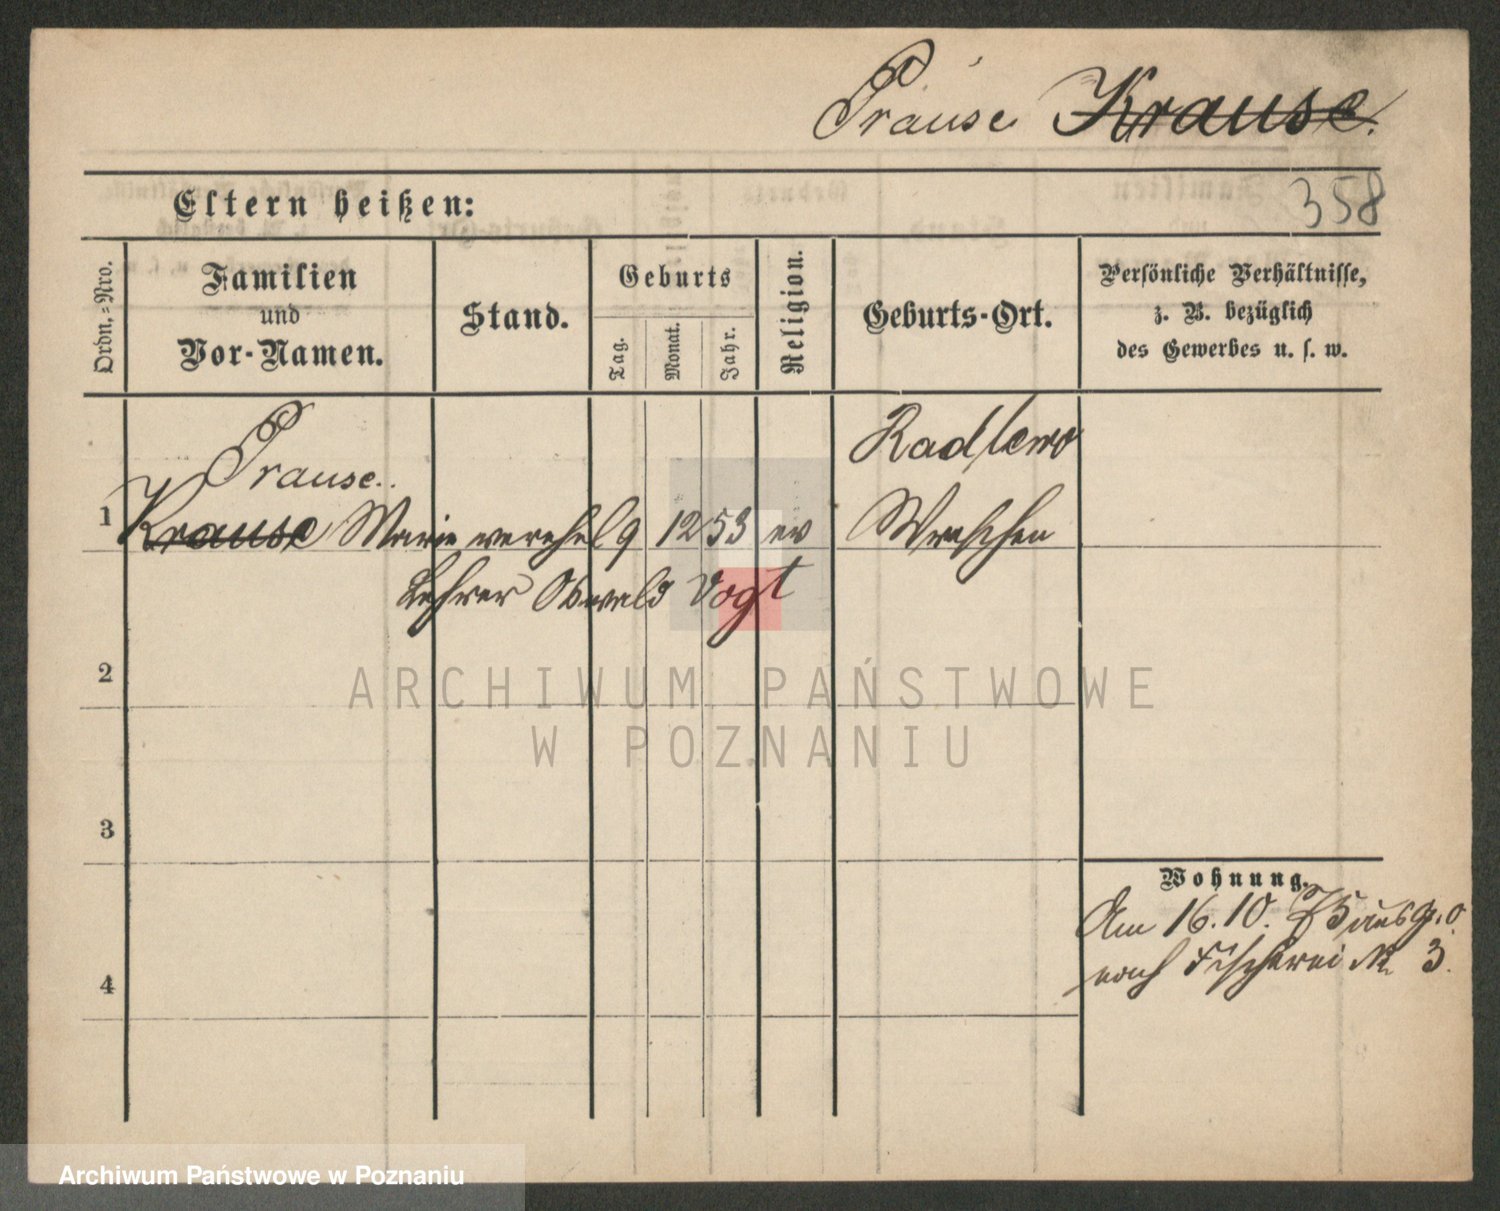 Prause Krause.
358
Eltern heißen:
Ordn.-Nro.
Familien
und
Vor-Namen.
Stand.
Geburts
Tag.
Monat.
Jahr.
Religion.
Geburts-Ort.
Persönliche Verhältnisse,
z. B. bezüglich
des Gewerbes u. s. w.
Prause.
Radlewo
1 Krause Marie verehel 9 12 53 ev Wreschen
Lehrer Oswald Vogt
2
3
4
Wohnung.
Am 16.10.
nach Fischerei No 3.
ARCHIWUM PAŃSTWOWE
W POZNANIU
Archiwum Państwowe w Poznaniu